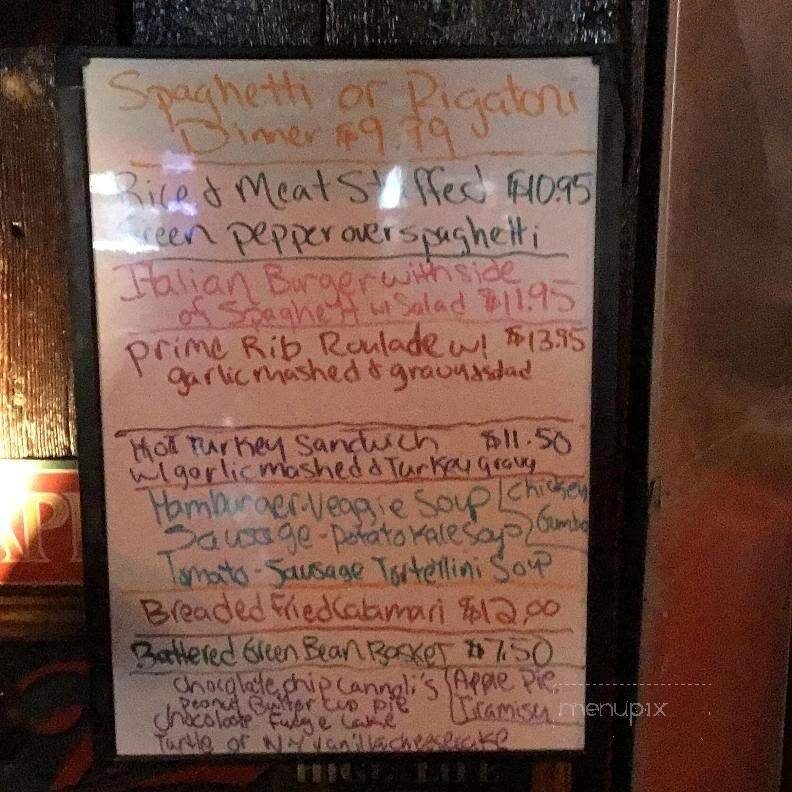 Spaghetti or Rigatoni
Dinner $9.79
Rice & Meat Stuffed $10.95
Green pepper over spaghetti
Italian Burger with side
of Spaghetti w/ Salad $11.95
Prime Rib Roulade w/ $13.95
garlic mashed & gravy & salad
Hot Turkey Sandwich $11.50
w/ garlic mashed & Turkey gravy
Hamburger-Veggie Soup Chicken
Sausage-Potato Kale Soup Gumbo
Tomato-Sausage Tortellini Soup
Breaded Fried Calamari $12.00
Battered Green Bean Basket $7.50
Chocolate chip Cannoli's Apple Pie
Peanut Butter Cup Pie
Tiramisu
Chocolate Fudge Cake
Turtle or NY vanilla cheesecake
menupix
HIGH LIFE